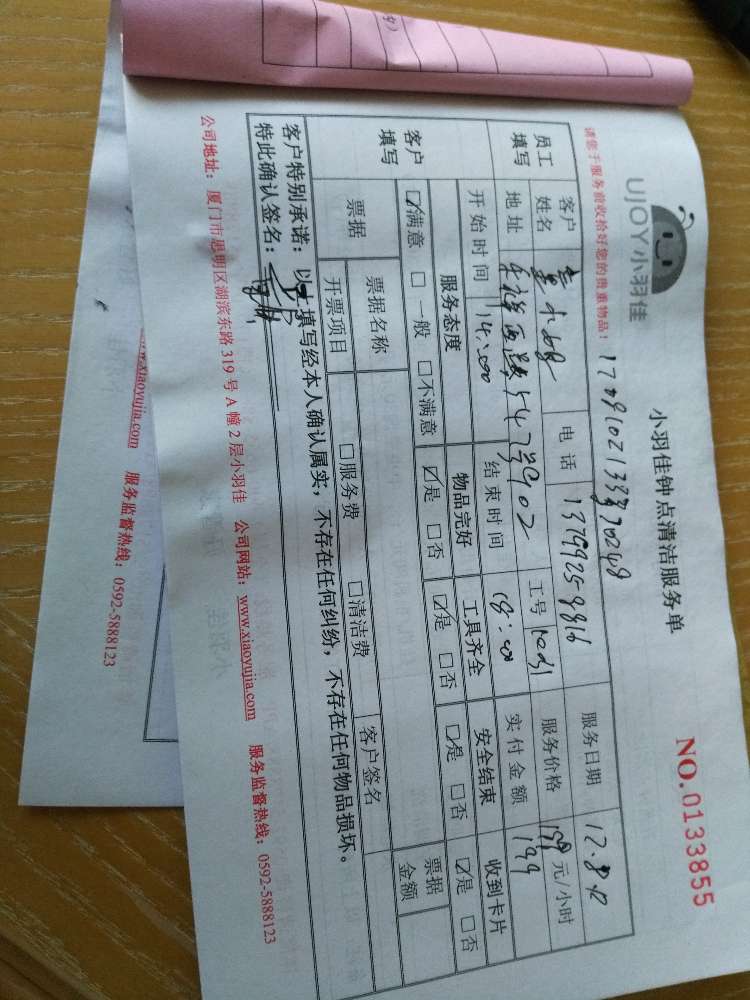 UJOY小羽佳
小羽佳钟点清洁服务单
NO.0133855
请您于服务前收拾好您的贵重物品！
员工填写
客户姓名 小姐 电话 服务日期 12.8
地址 工号 服务价格 元/小时
开始时间 14:00 结束时间 18:00 实付金额 199
客户填写
服务态度 物品完好 工具齐全 安全结束 收到卡片
☑满意 □一般 □不满意 ☑是 □否 ☑是 □否 □是 □否 ☑是 □否
票据 票据名称 客户签名 票据金额
开票项目 □服务费 □清洁费
客户特别承诺：以上填写经本人确认属实，不存在任何纠纷，不存在任何物品损坏。
特此确认签名：
公司地址：厦门市思明区湖滨东路319号A幢2层小羽佳 公司网站：www.xiaoyujia.com 服务监督热线：0592-5888123
www.xiaoyujia.com 服务监督热线：0592-5888123